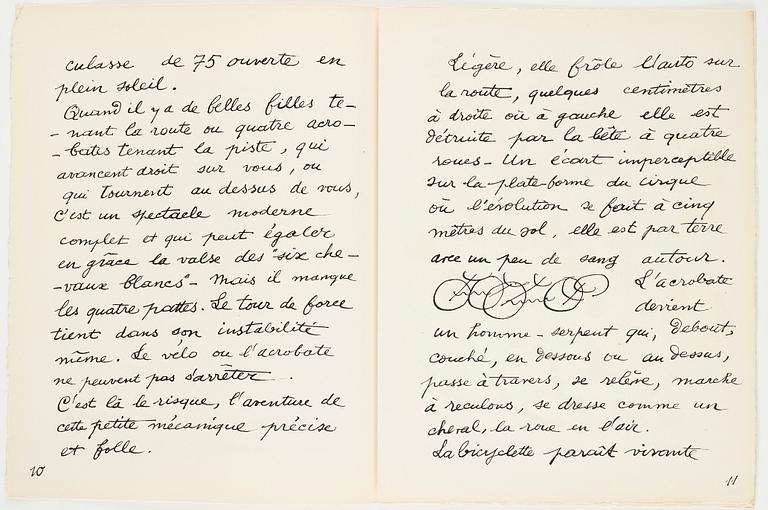 culasse de 75 ouverte en
plein soleil.
Quand il y a de belles filles te-
-nant la route ou quatre acro-
-bates tenant la piste, qui
avancent droit sur vous, ou
qui tournent au dessus de vous,
c'est un spectacle moderne
complet et qui peut égaler
en grâce la valse des "six che-
-vaux blancs" - Mais il manque
les quatre pattes. Le tour de force
tient dans son instabilité
même. Le vélo ou l'acrobate
ne peuvent pas s'arrêter.
C'est là le risque, l'aventure de
cette petite mécanique précise
et folle.
10
Légère, elle frôle l'auto sur
la route, quelques centimètres
à droite où à gauche elle est
détruite par la bête à quatre
roues - Un écart imperceptible
sur la plate-forme du cirque
où l'évolution se fait à cinq
mètres du sol, elle est par terre
avec un peu de sang autour.
L'acrobate
devient
un homme-serpent qui, debout,
couché, en dessous ou au dessus,
passe à travers, se relève, marche
à reculons, se dresse comme un
cheval, la roue en l'air.
La bicyclette paraît vivante
11